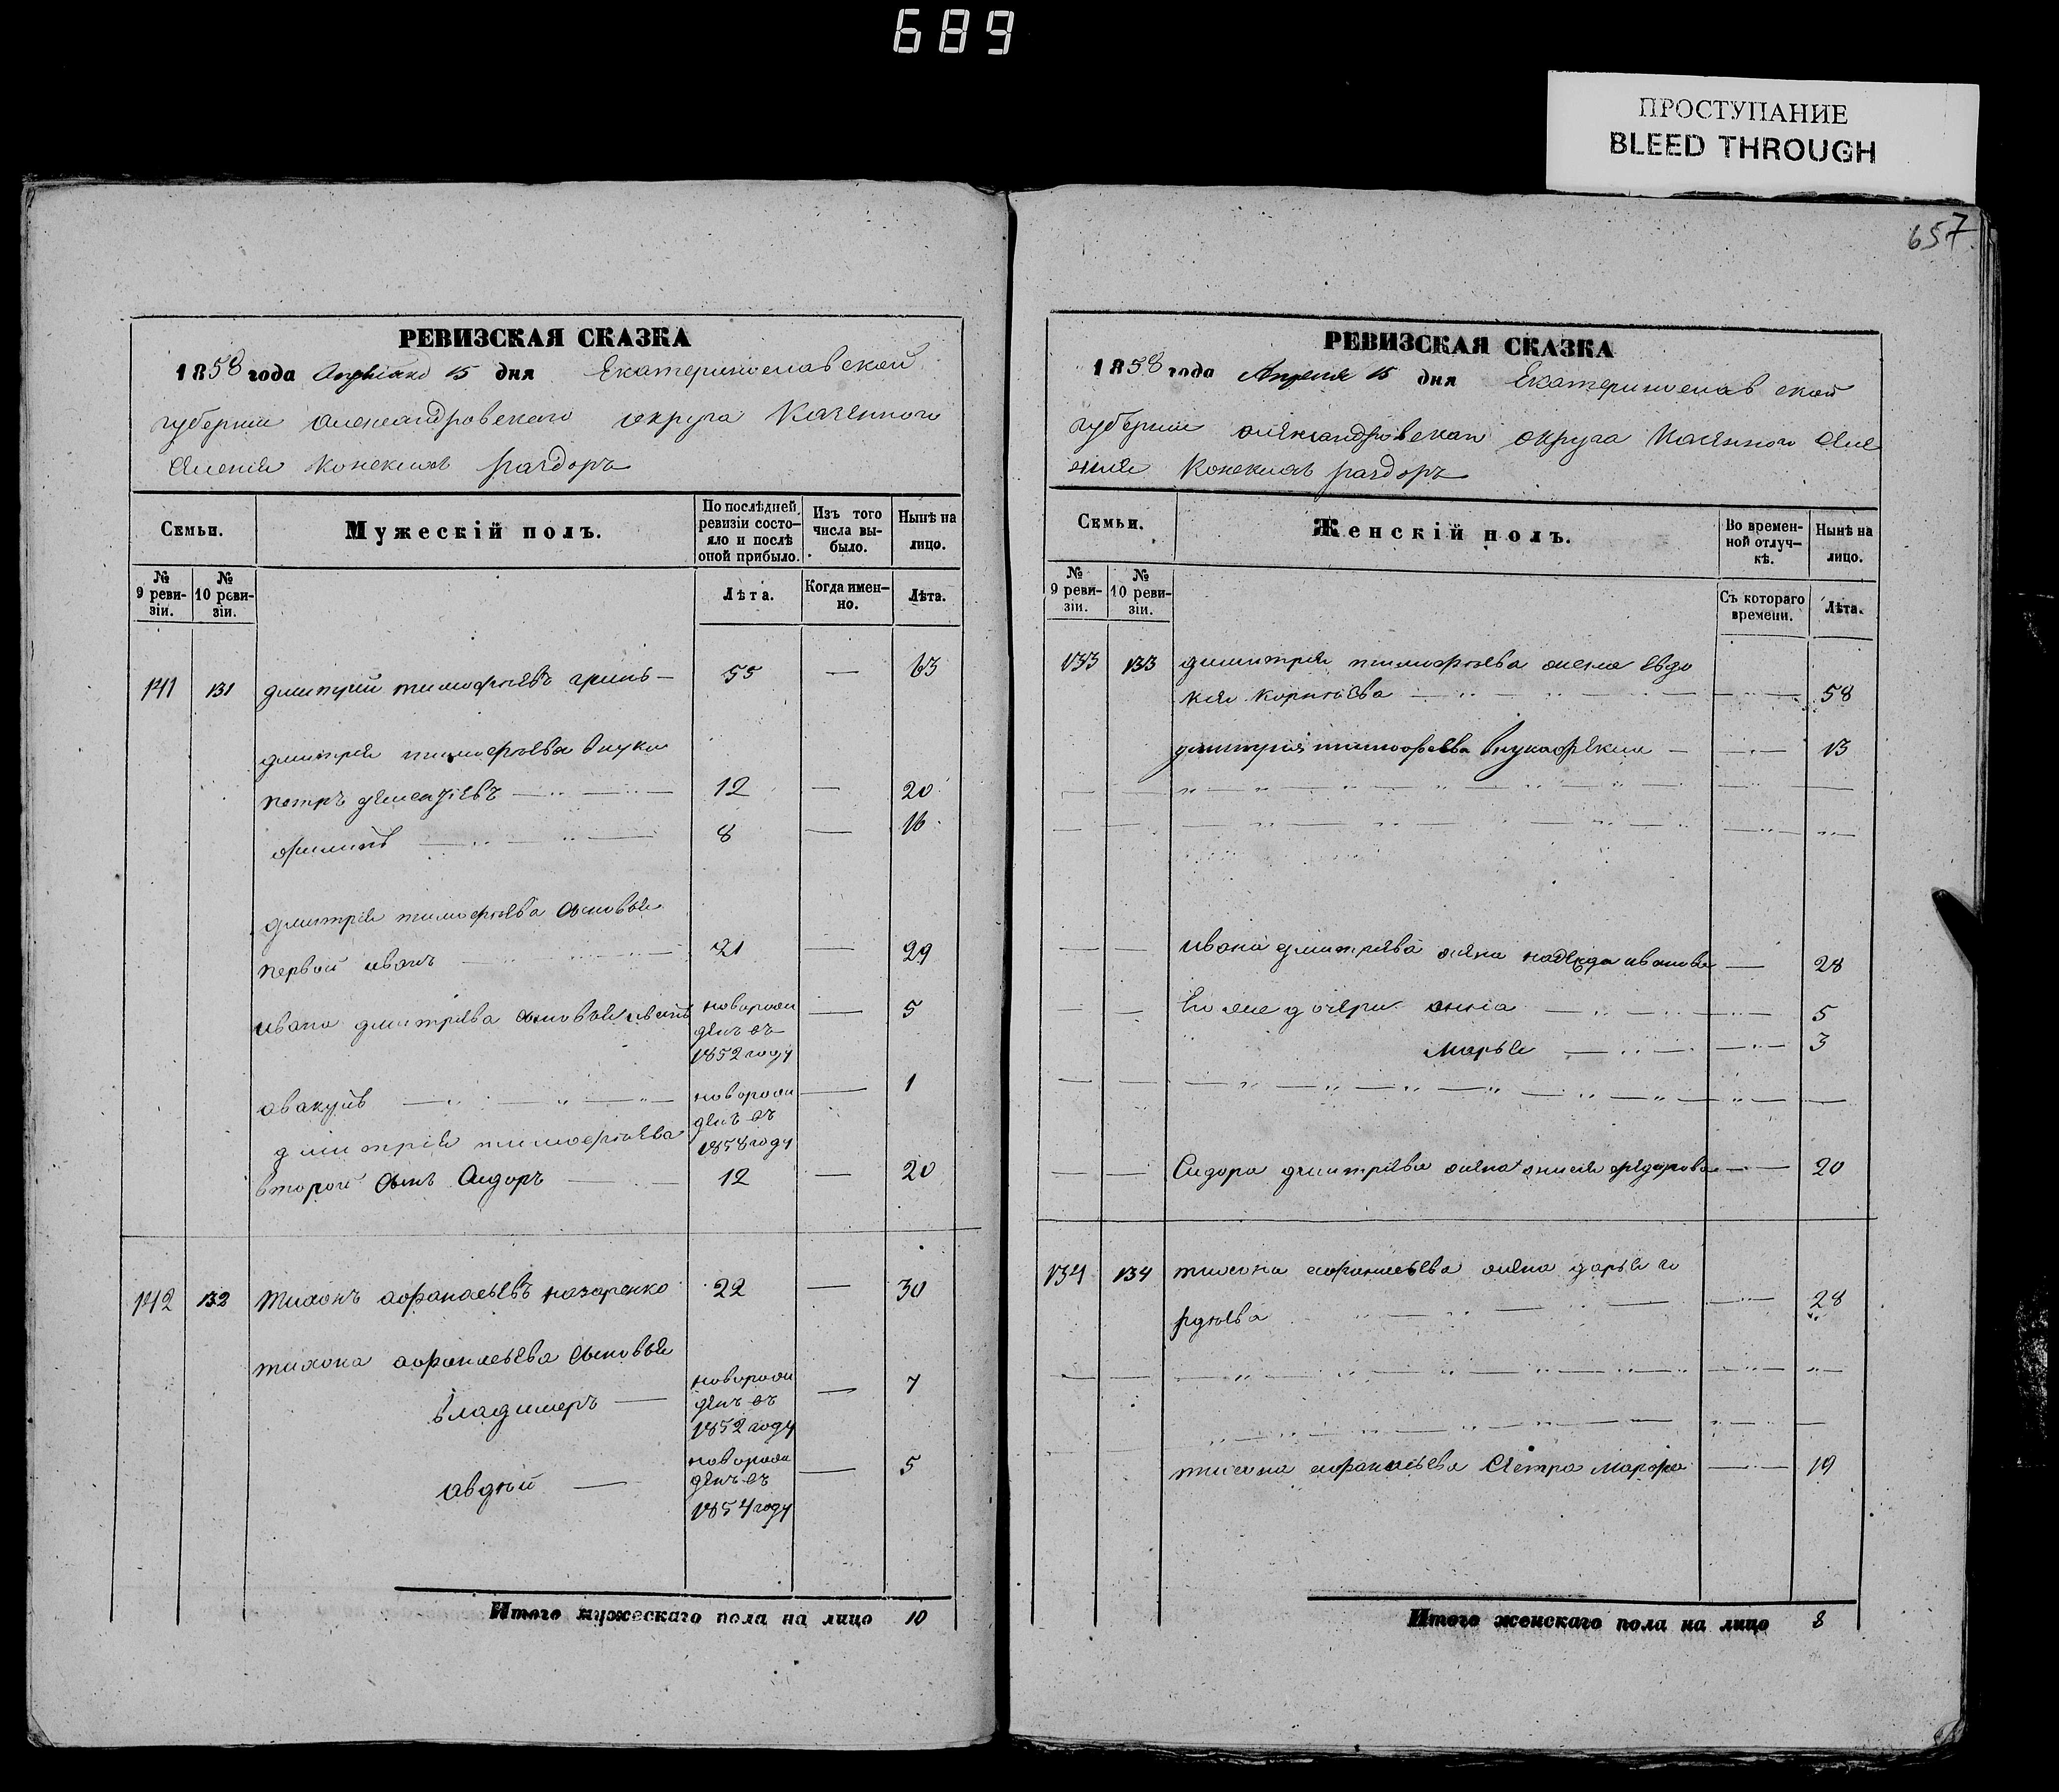 689
ПРОСТУПАНИЕ
BLEED THROUGH
657
РЕВИЗСКАЯ СКАЗКА
1858 года Апреля 15 дня Екатеринославской
губернии Александровского округа Казенного
Конских раздоръ
Семьи.
Мужескій полъ.
По послѣдней ревизіи состо-
яло и послѣ
оной прибыло.
Изъ того
числа вы-
было.
Нынѣ на
лицо.
№
9 реви-
зіи.
№
10 реви-
зіи.
Лѣта.
Когда имен-
но.
Лѣта.
141 131 дмитрий тимофѣевъ гринь — 55 — 63
дмитрія тимофѣева внуки
петръ дементіевъ 12 — 20
филипъ 8 — 16
дмитрія тимофѣева сыновья
первой иванъ 21 — 29
ивана дмитріева сыновья новорож
денъ въ
1852 году — 5
авакумъ новорож
денъ въ
1858 году — 1
дмитрія тимофѣева
второй сынъ Сидоръ 12 — 20
142 132 тихонъ афанасьевъ назаренко 22 — 30
тихона афанасьева сыновья
владимеръ — новорож
денъ въ
1852 году — 7
авдѣй — новорож
денъ въ
1854 году — 5
Итого мужескаго пола на лицо 10
РЕВИЗСКАЯ СКАЗКА
1858 года Апреля 15 дня Екатеринославской
губернии александровскаго округа Казенного име
ния Конских раздоръ
Семьи.
Женскій полъ.
Во времен-
ной отлуч-
кѣ.
Нынѣ на
лицо.
№
9 реви-
зіи.
№
10 реви-
зіи.
Съ котораго
времени.
Лѣта.
133 133 димитрія тимофѣева жена евдо
кія корнѣева 58
дмитрія тимофѣева внука 13
ивана дмитріева жена надежда иванова — 28
его же дочери анна 5
марья 3
Сидора дмитріева жена федорова 20
134 134 тихона афанасьева жена дарья го
рдѣева 28
тихона афанасьева сестра марфа 19
Итого женскаго пола на лицо 8